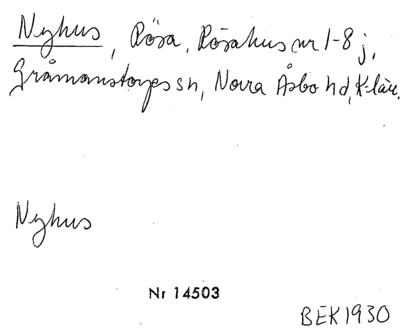 Nyhus, Rösa, Rösahus nr 1-8 j,
Gråmanstorps sn, Norra Åsbo hd, K-län.
Nyhus
Nr 14503
BEK1930